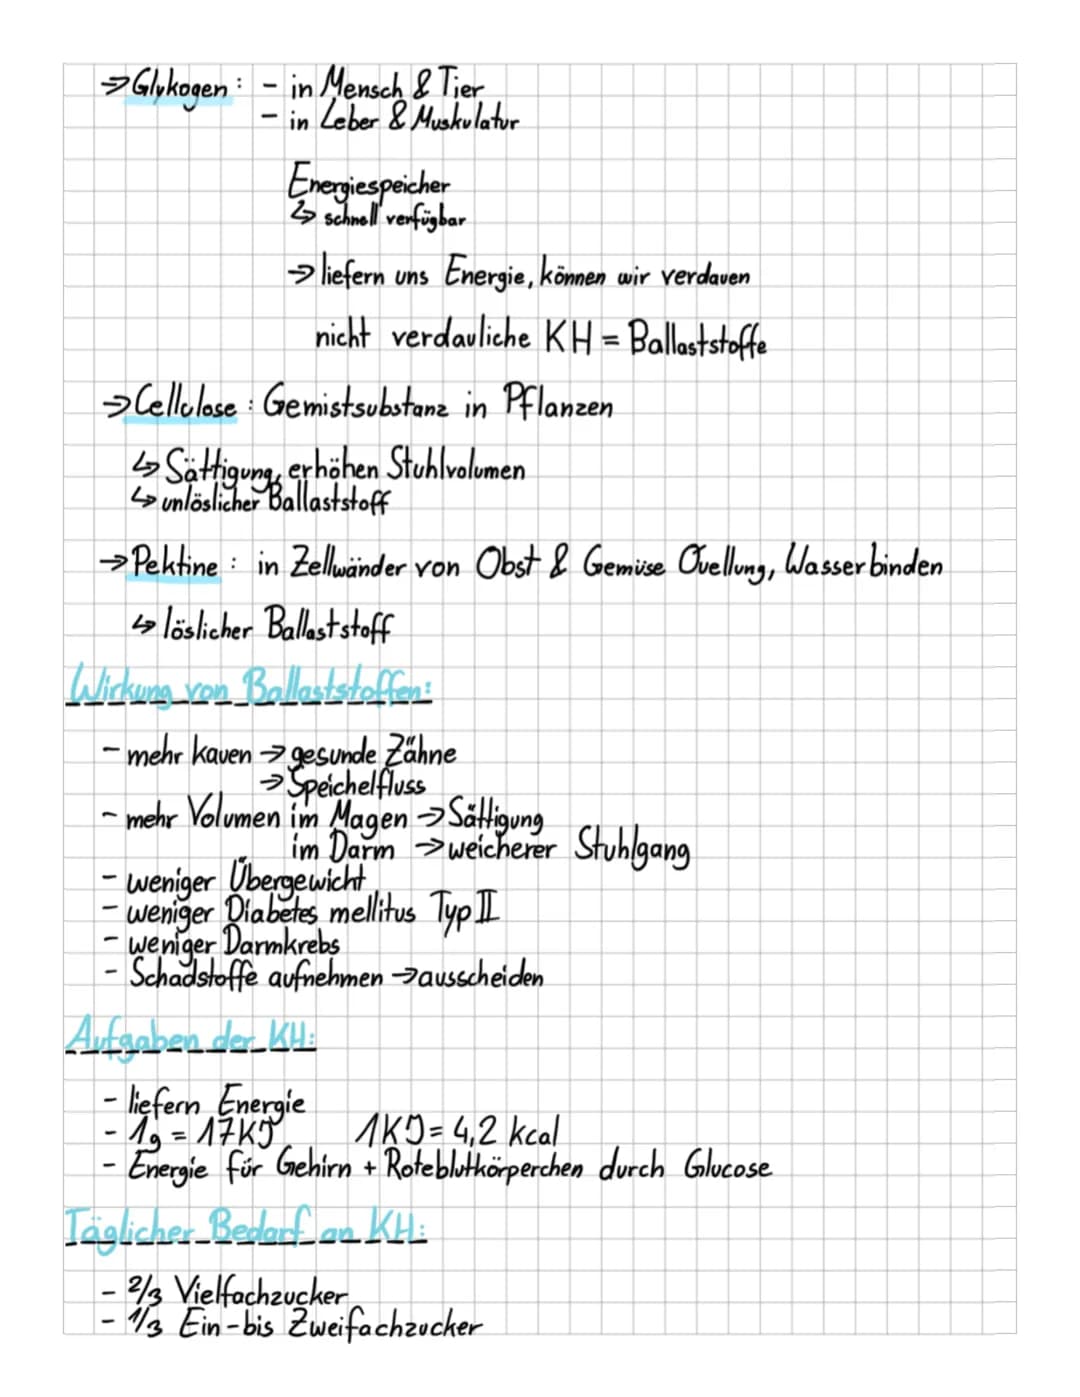 → Glykogen: - in Mensch & Tier
- in Leber & Muskulatur
Energiespeicher
↳ schnell verfügbar
→ liefern uns Energie, können wir verdauen
nicht verdauliche KH = Ballaststoffe
→ Cellulose: Gemistsubstanz in Pflanzen
↳ Sättigung, erhöhen Stuhlvolumen
↳ unlöslicher Ballaststoff
→ Pektine: in Zellwänder von Obst & Gemüse Quellung, Wasserbinden
↳ löslicher Ballaststoff
Wirkung von Ballaststoffen:
- mehr kauen → gesunde Zähne
→ Speichelfluss
- mehr Volumen im Magen → Sättigung
im Darm → weicherer Stuhlgang
- weniger Übergewicht
- weniger Diabetes mellitus Typ II
- weniger Darmkrebs
- Schadstoffe aufnehmen → ausscheiden
Aufgaben der KH:
- liefern Energie
- 1g = 17KJ 1KJ = 4,2 kcal
- Energie für Gehirn + Roteblutkörperchen durch Glucose
Täglicher Bedarf an KH:
- 2/3 Vielfachzucker
- 1/3 Ein-bis Zweifachzucker